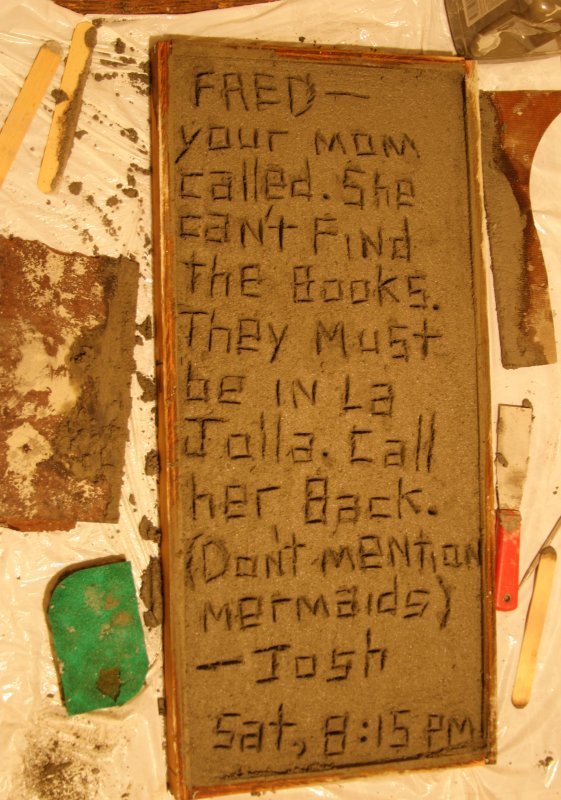 FRED —
your mom
called. She
can't Find
the Books.
They Must
be IN La
Jolla. Call
her Back.
(Don't mention
mermaids)
— Josh
Sat, 8:15 PM